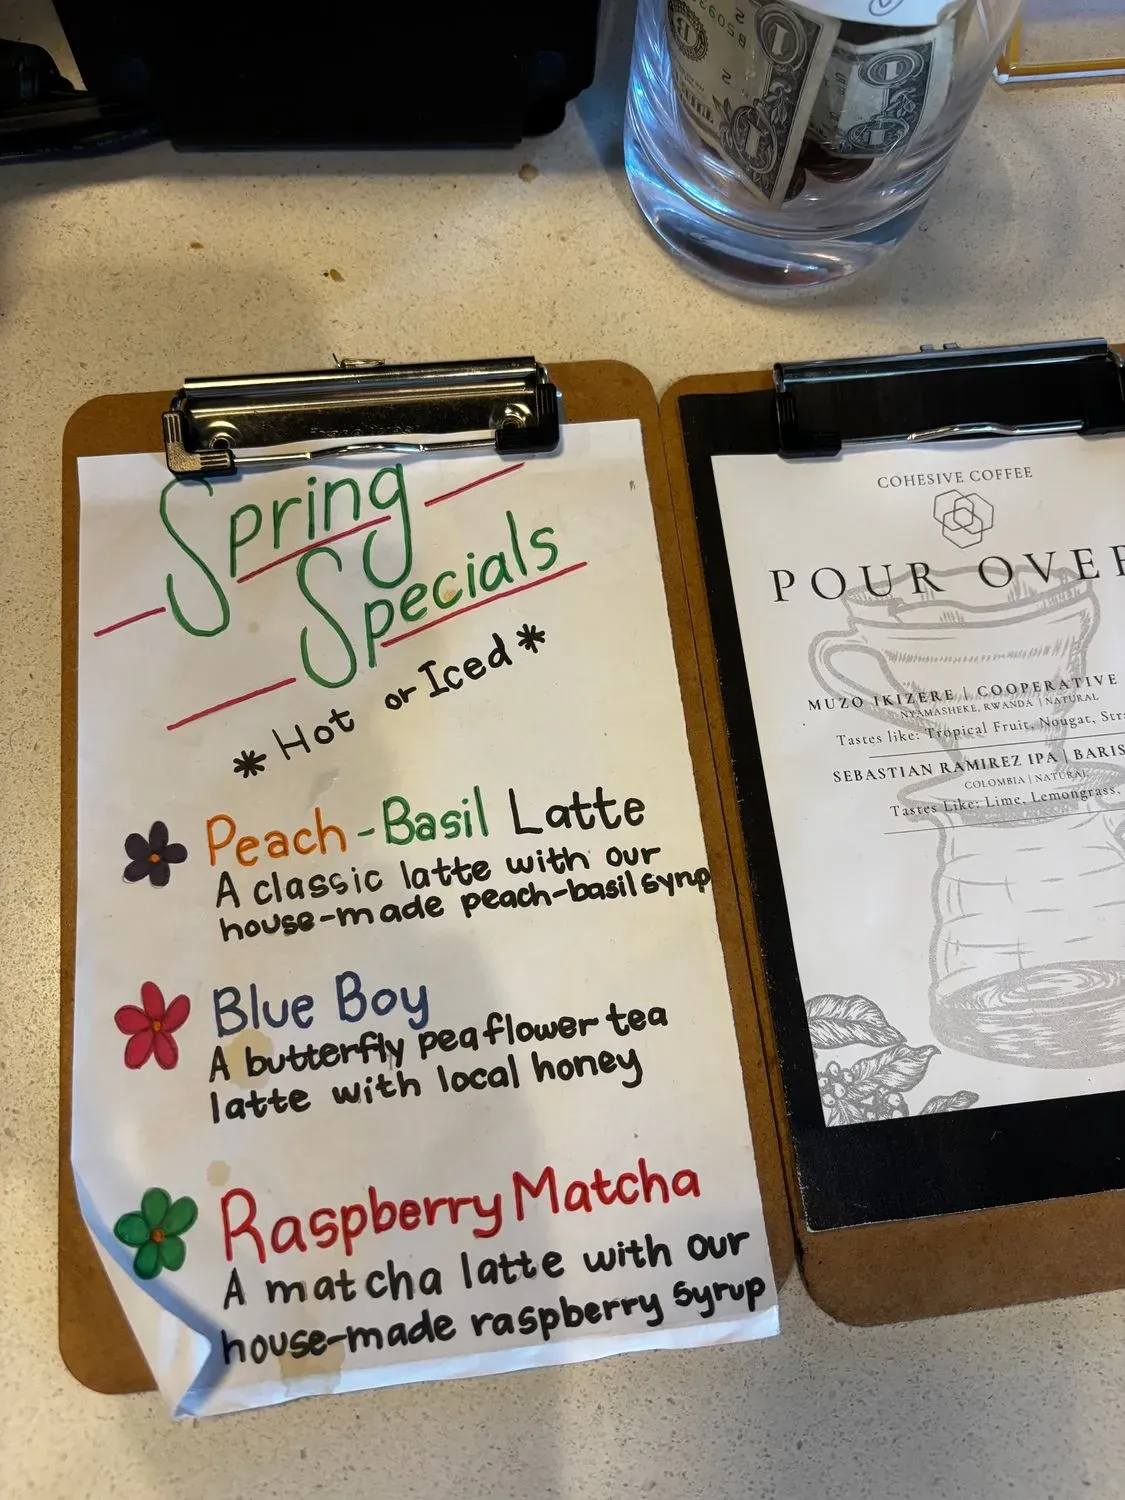 Spring
Specials
*Hot or Iced*
Peach-Basil Latte
A classic latte with our
house-made peach-basil syrup
Blue Boy
A butterfly pea flower tea
latte with local honey
Raspberry Matcha
A matcha latte with our
house-made raspberry syrup
COHESIVE COFFEE
POUR OVER
MUZO IKIZERE | COOPERATIVE
NYAMASHEKE, RWANDA | NATURAL
Tastes like: Tropical Fruit, Nougat,
SEBASTIAN RAMIREZ IPA |
COLOMBIA | NATURAL
Tastes Like: Lime, Lemongrass,